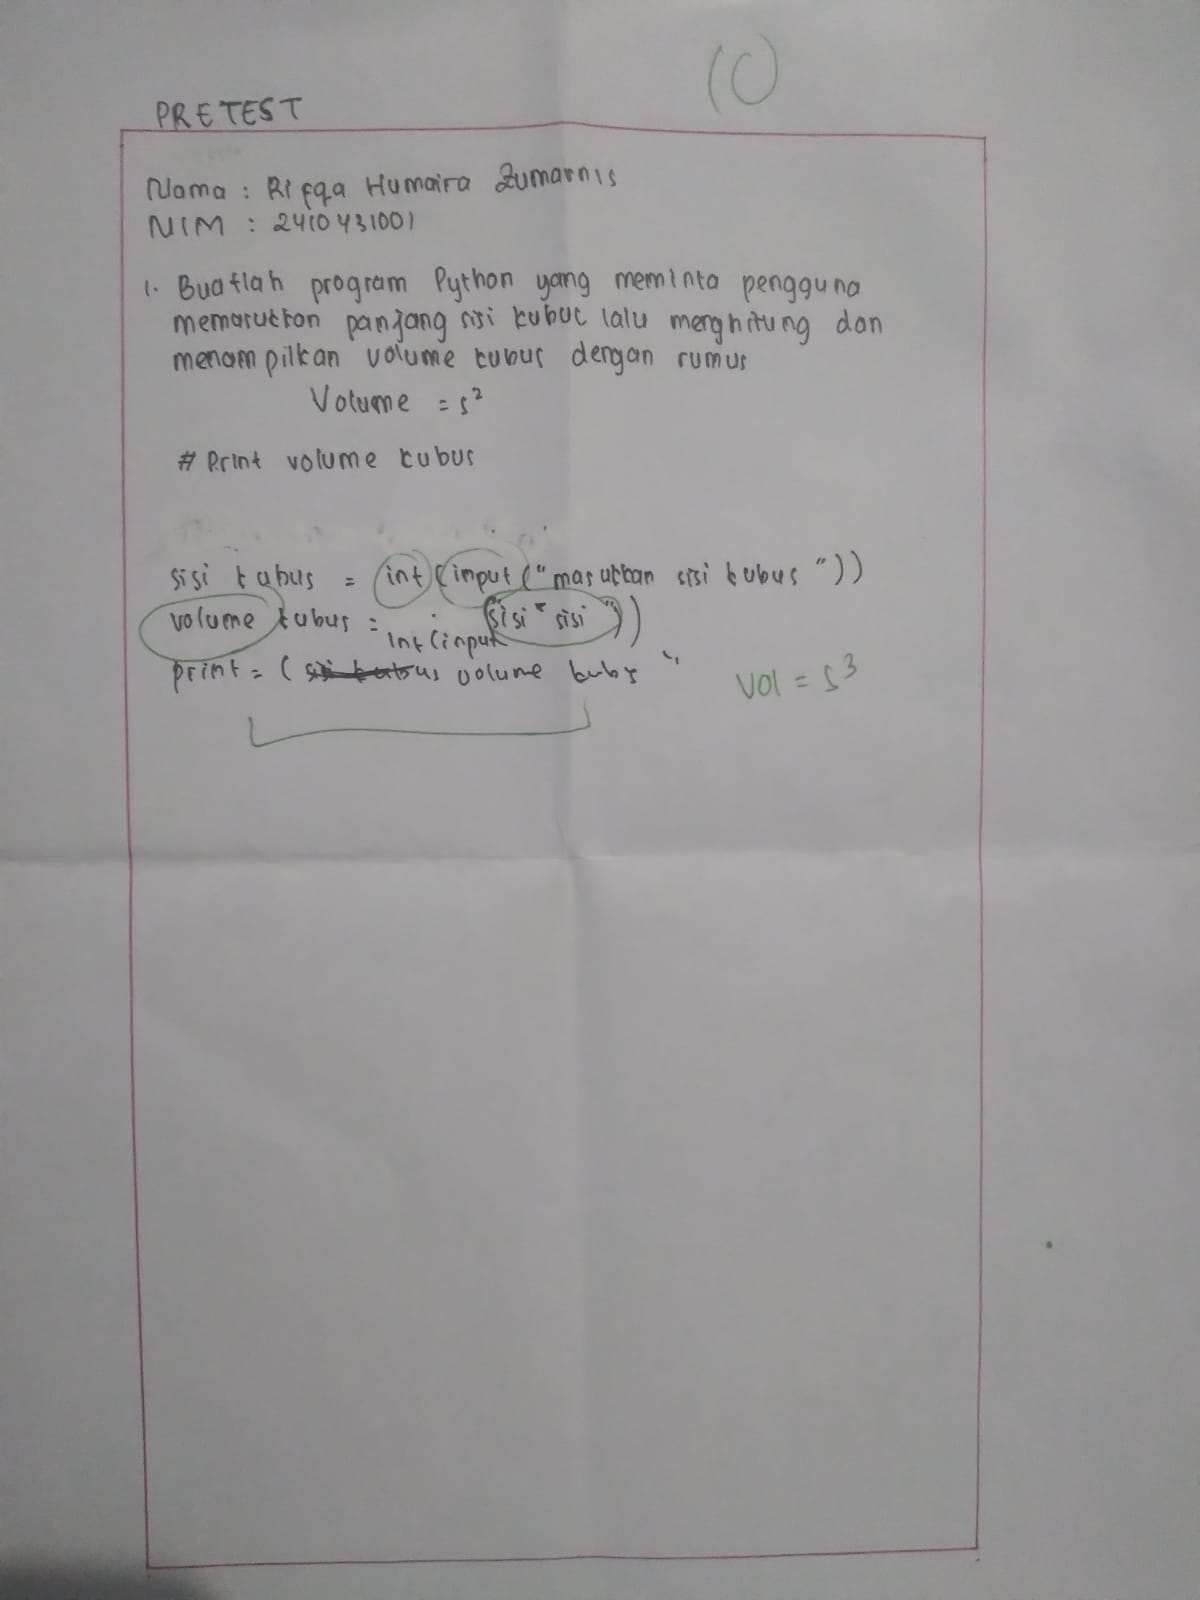 10
PRETEST
Nama : Rifqa Humaira Zumarnis
NIM : 2410431001
1. Buatlah program Python yang meminta pengguna
memasukkan panjang sisi kubus lalu menghitung dan
menampilkan volume kubus dengan rumus
Volume = s²
# Print volume kubus
sisi kubus = int (input ("masukkan sisi kubus "))
volume kubus = int (input "sisi * sisi "))
print = ( volume kubs "
Vol = s³